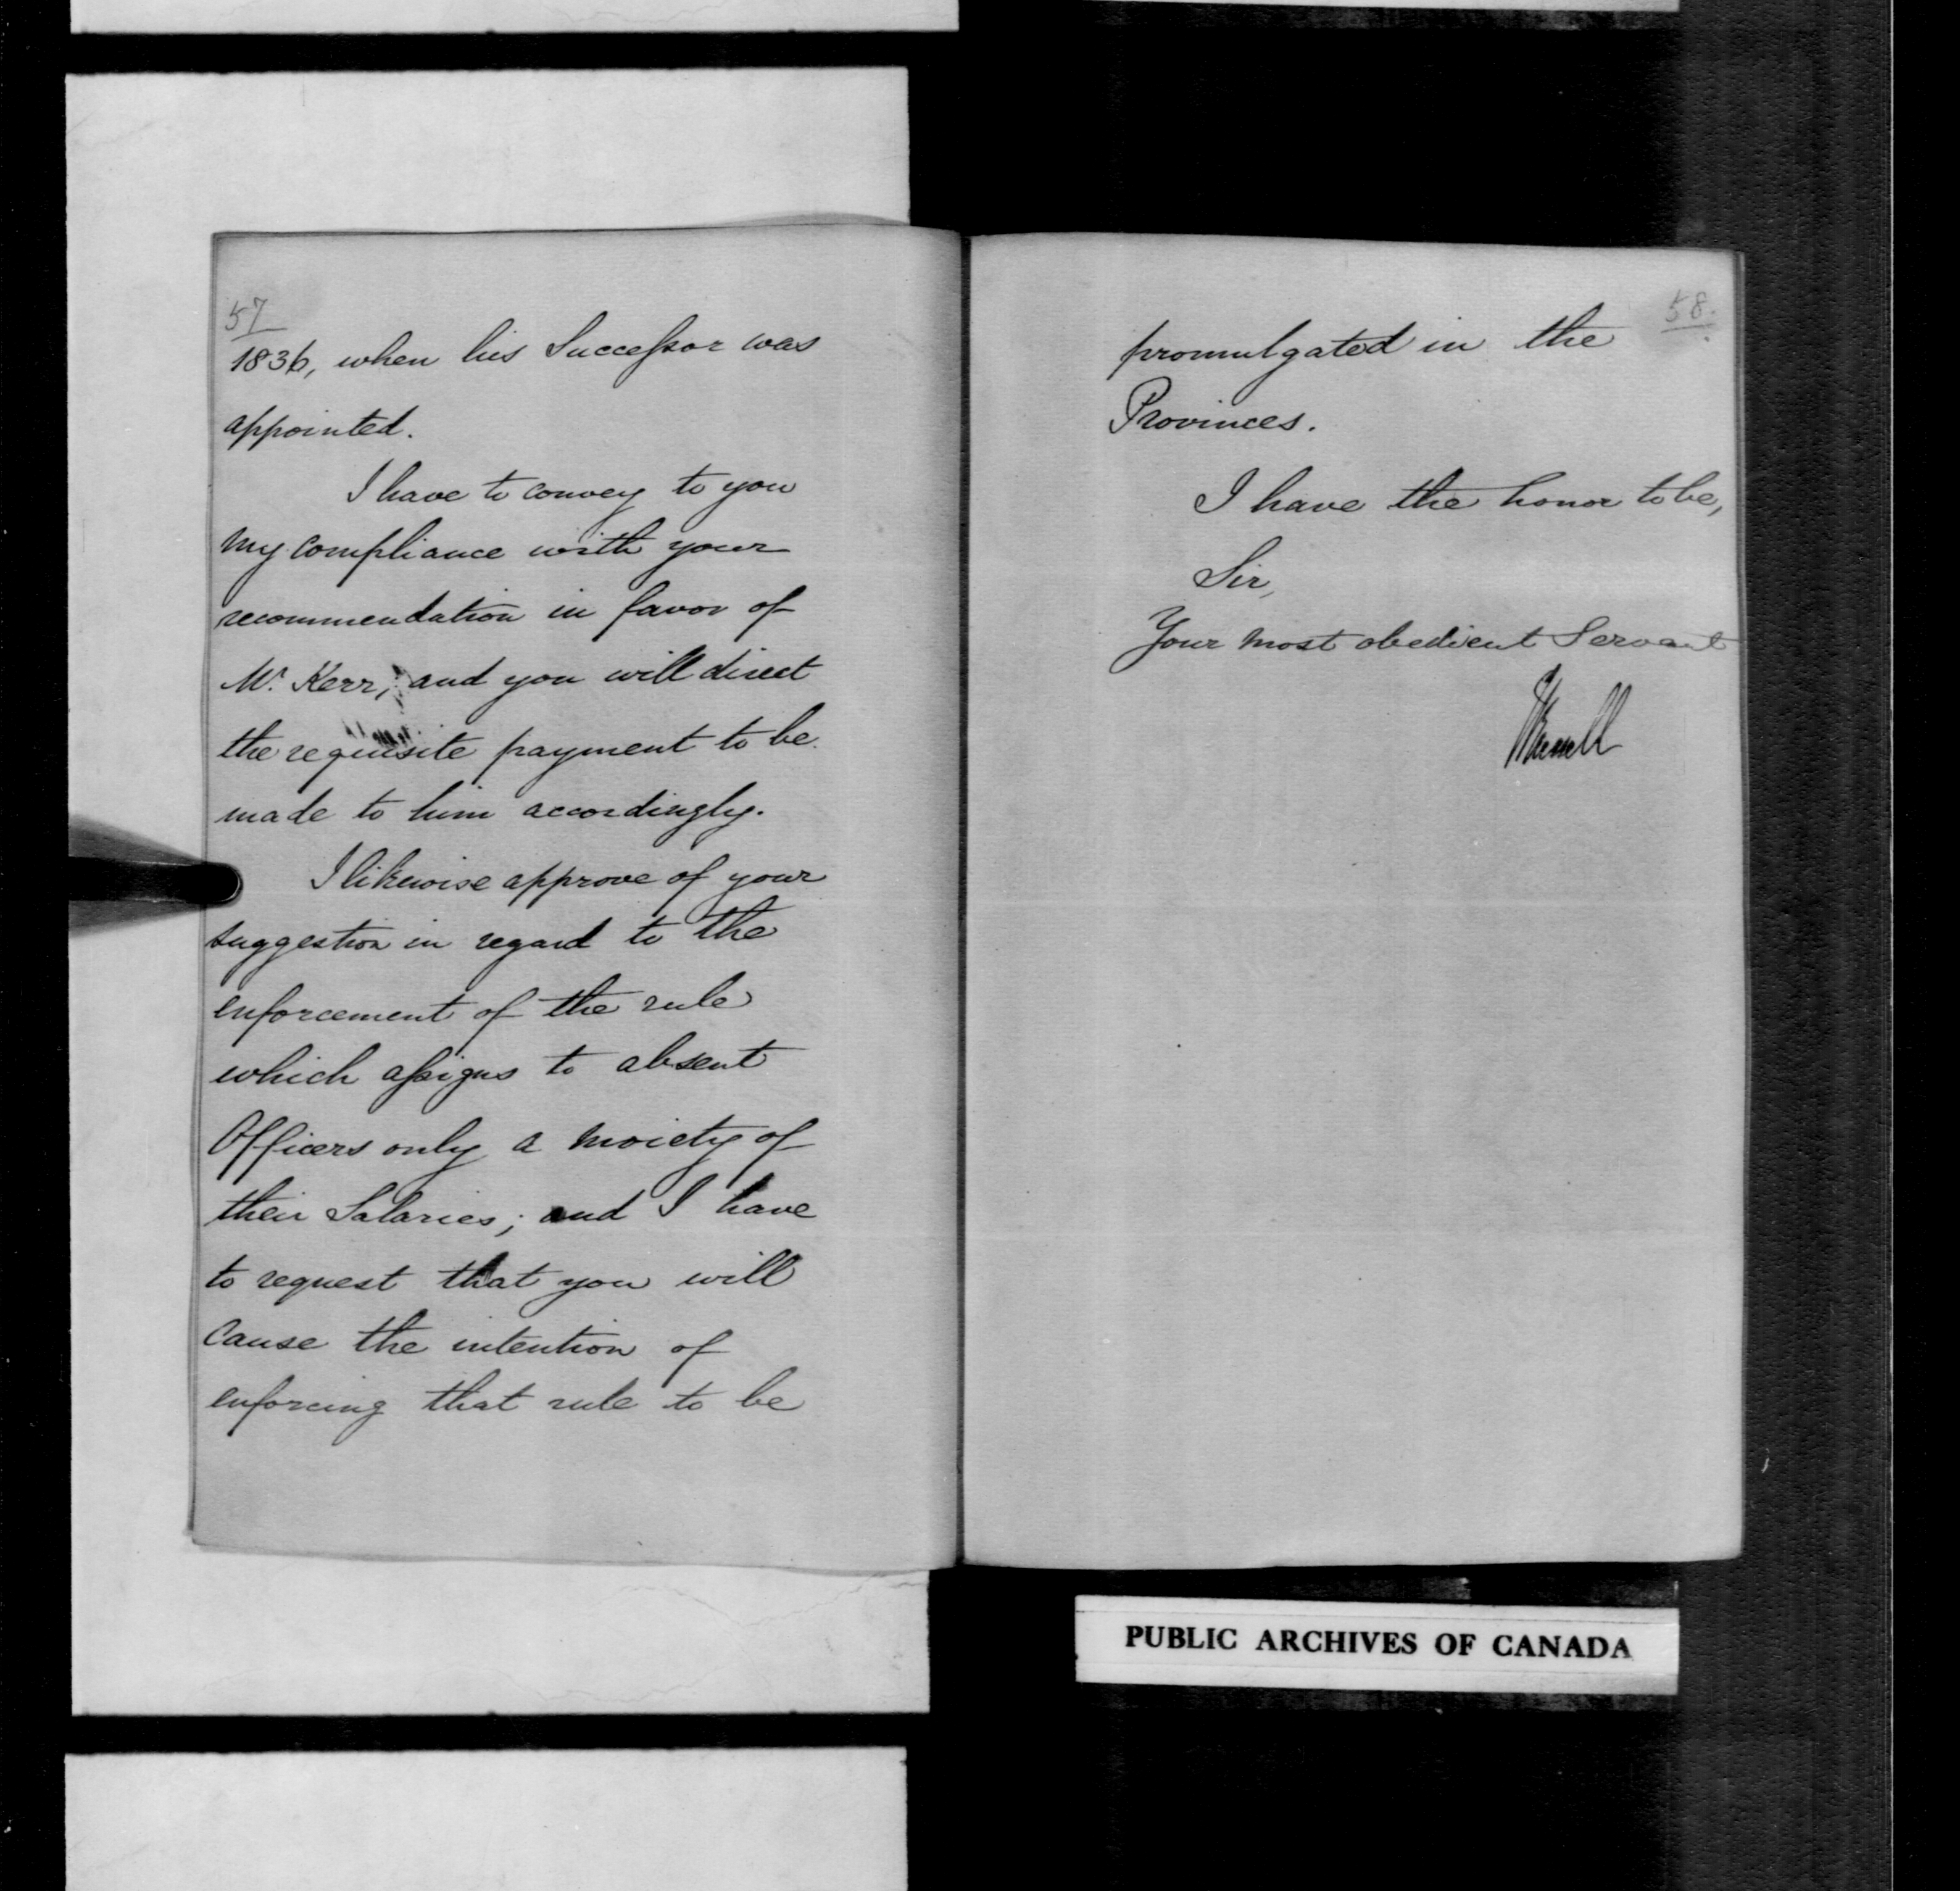 57
1836, when his Successor was
appointed.
I have to convey to you
my compliance with your
recommendation in favor of
Mr. Kerr, and you will direct
the requisite payment to be
made to him accordingly.
I likewise approve of your
suggestion in regard to the
enforcement of the rule
which assigns to absent
Officers only a moiety of
their Salaries; and I have
to request that you will
cause the intention of
enforcing that rule to be
58.
promulgated in the
Provinces.
I have the honor to be,
Sir,
Your most obedient Servant
JRussell
PUBLIC ARCHIVES OF CANADA